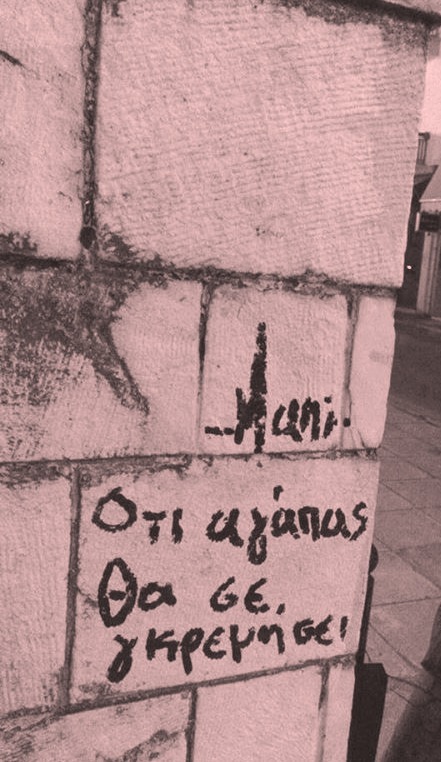 Οτι αγάπας
Θα σε.
γκρεμησει